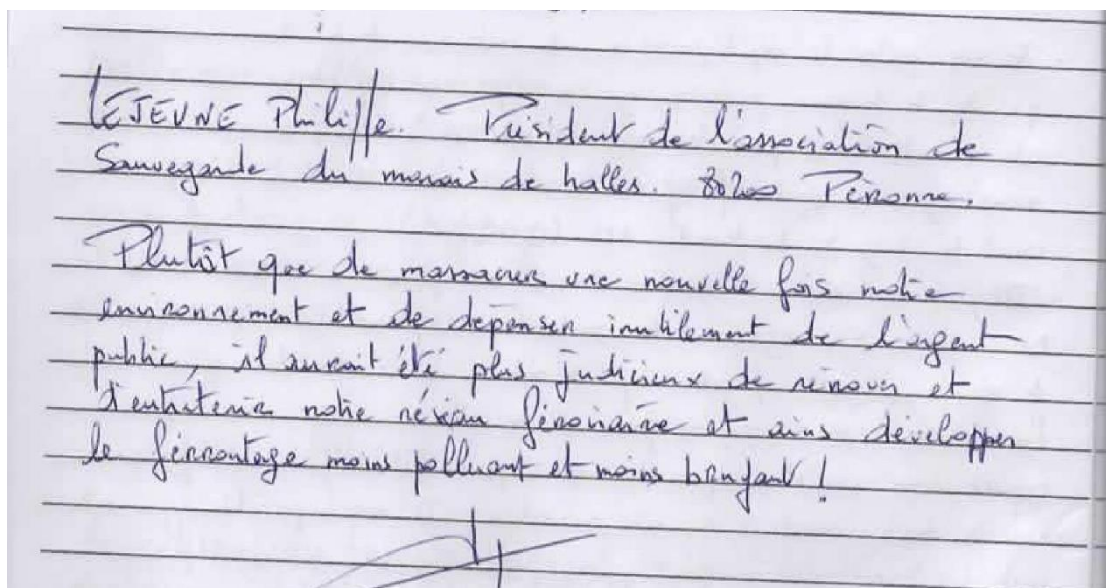 LEJEUNE Philippe. Président de l'association de
Sauvegarde du marais de halles. 80200 Péronne.
Plutôt que de massacrer une nouvelle fois notre
environnement et de dépenser inutilement de l'argent
public, il aurait été plus judicieux de rénover et
d'entretenir notre réseau férroviaire et ains développer
le férroutage moins polluant et moins bruyant !